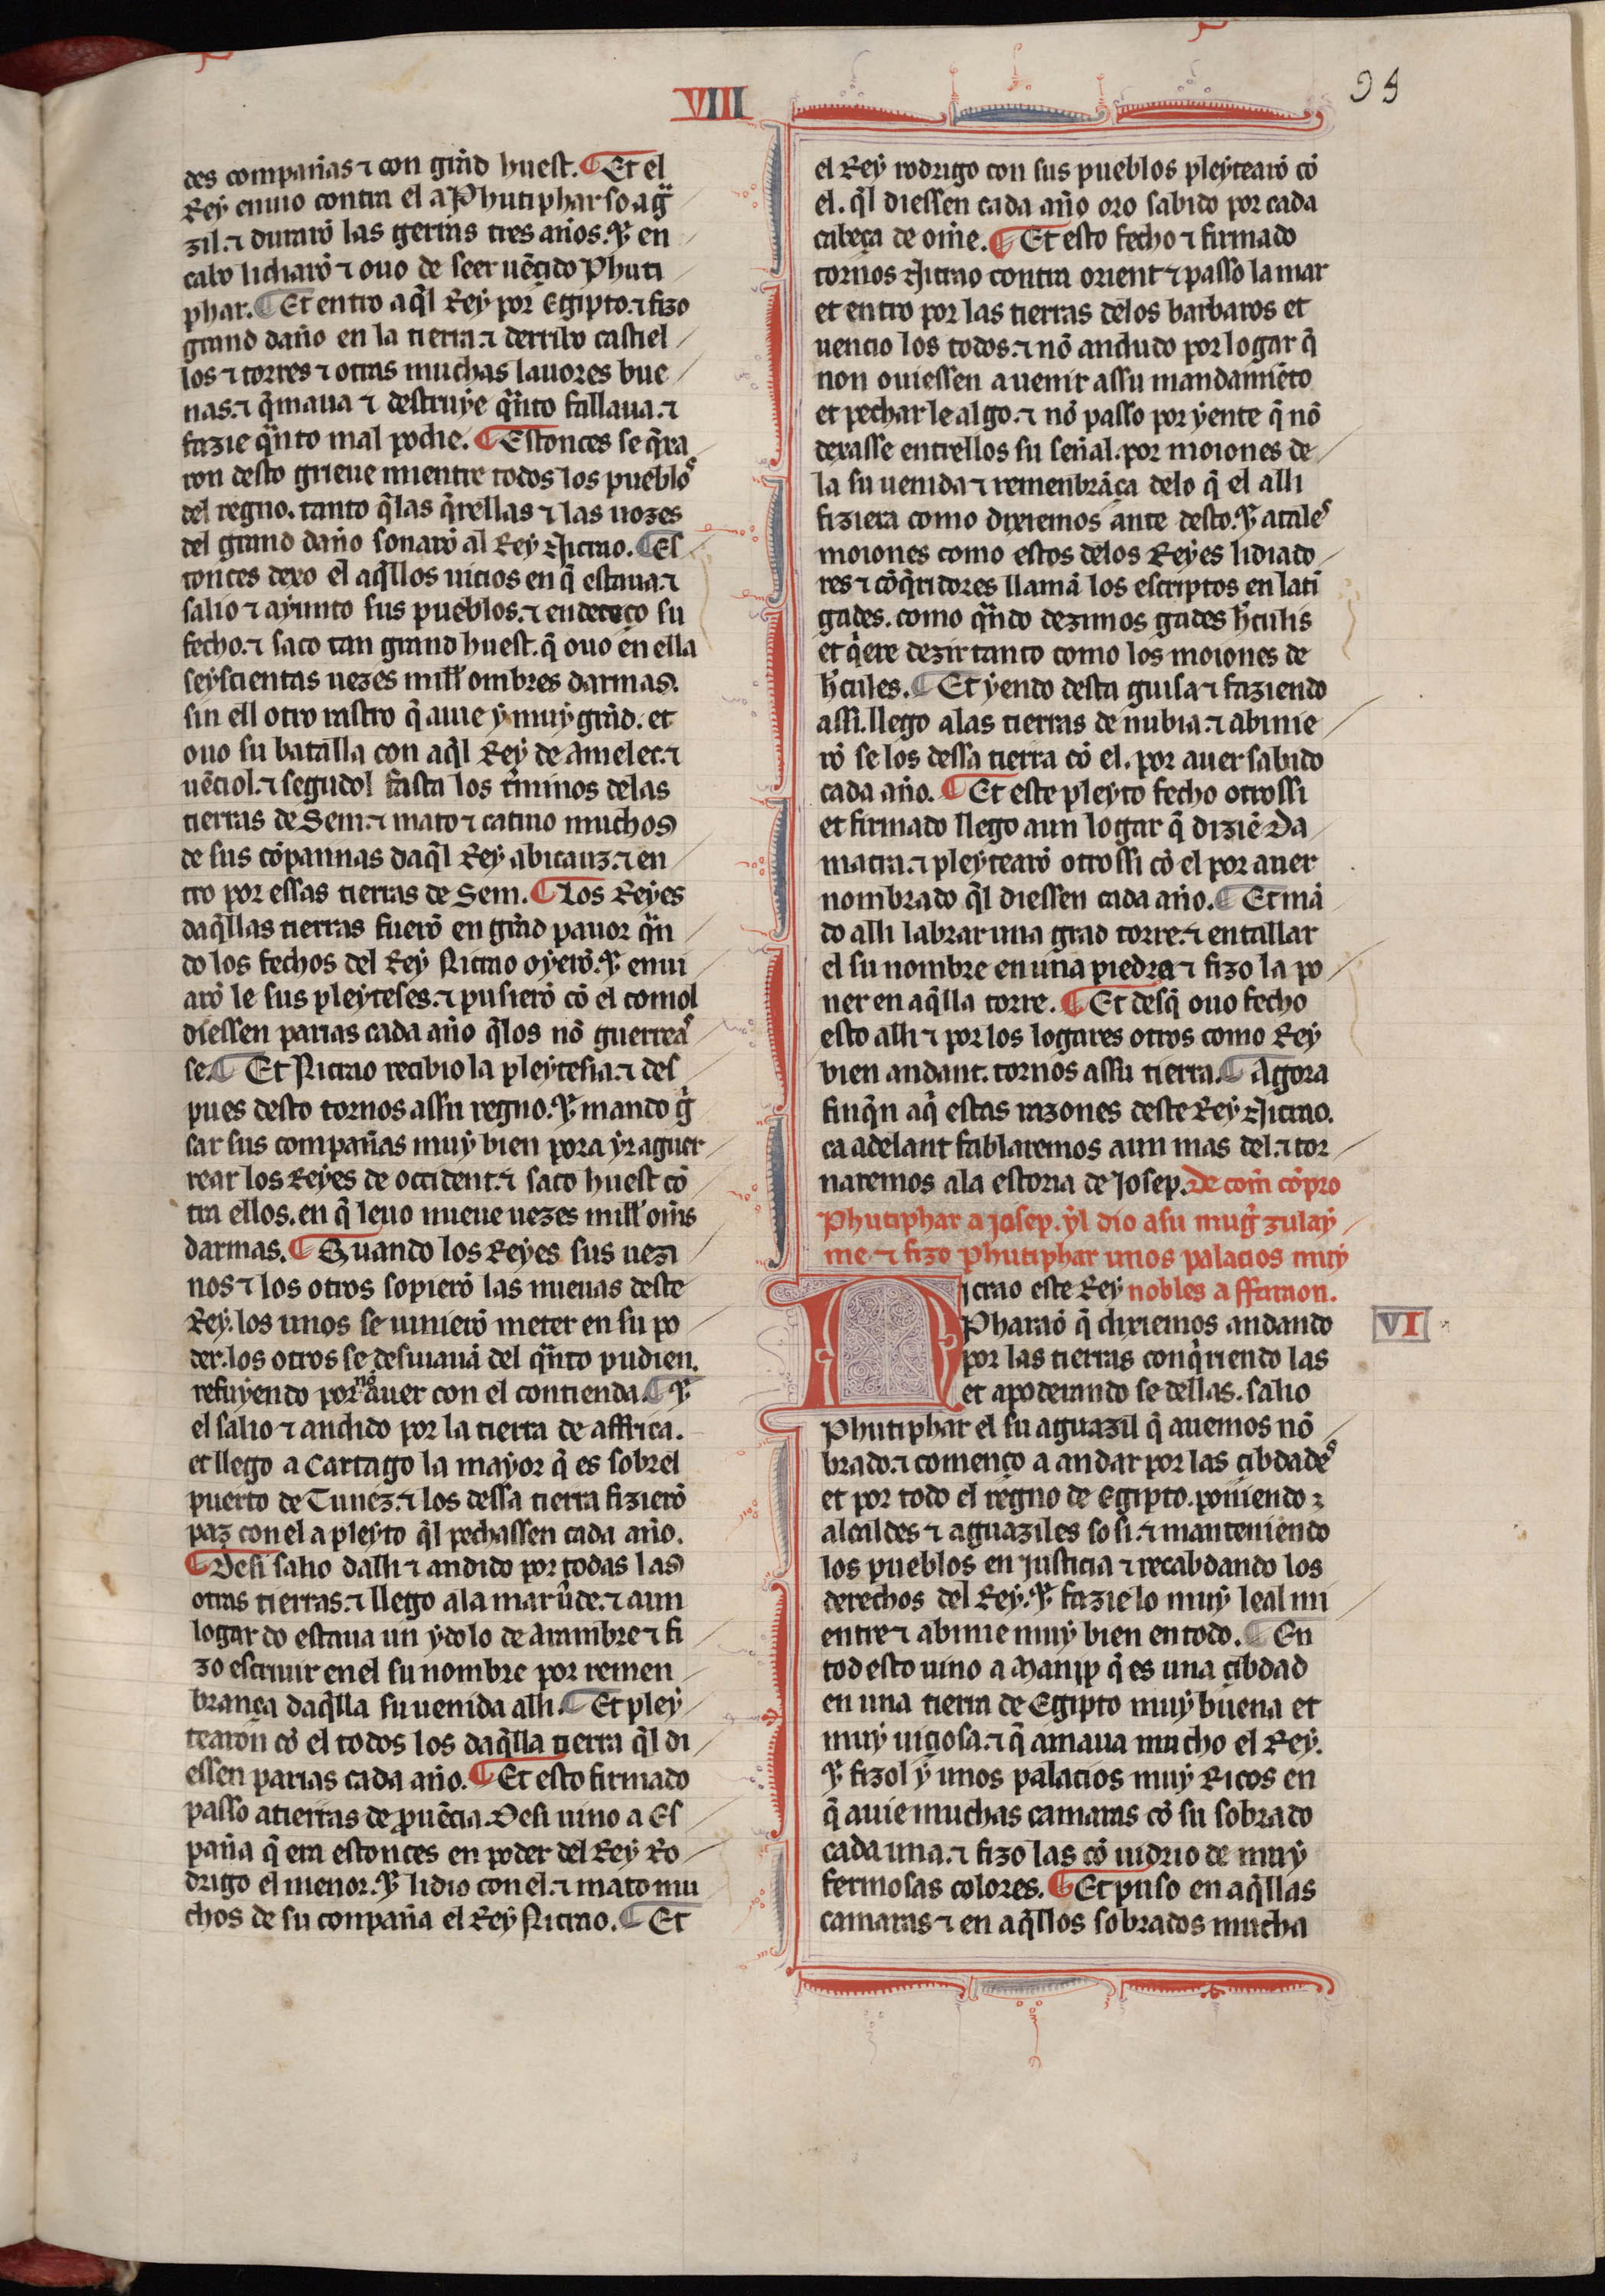 VIII
95
des compañas ⁊ con gnd huest. ¶ Et el
Rey enuio contra el a Phutiphar so ag̃
zil. ⁊ duraró las gerras tres años. Et en
cabo lidiaró ⁊ ouo de seer uẽçido Phuti
phar. ¶ Et entro aq̃l Rey por Egipto. ⁊ fizo
grand daño en la tierra. ⁊ derribo castiel
los ⁊ torres ⁊ otras muchas lauores bue
nas. ⁊ q̃maua ⁊ destruye q̃nto fallaua. ⁊
fazie q̃nto mal podie. ¶ Estonces se q̃ra
ron desto grieue mientre todos los pueblos
del regno. tanto q̃ las q̃rellas ⁊ las uozes
del grand daño sonaró al Rey Nicrao. ¶ Es
tonces dexo el aq̃llos uicios en q̃ estaua. ⁊
salio ⁊ ayunto sus pueblos. ⁊ endereço su
fecho. ⁊ saco tan grand huest. q̃ ouo en ella
seyscientas uezes mill ombres darmas.
sin ell otro rastro q̃ auie y muy grãd. et
ouo su batalla con aq̃l Rey de Amelec. ⁊
uẽciol. ⁊ segudol fasta los t̃minos delas
tierras de Sem. ⁊ mato ⁊ catiuo muchos
de sus cópannas daq̃l Rey abicauz. ⁊ en
tro por essas tierras de Sem. ¶ Los Reyes
daq̃llas tierras fueró en grãd pauor q̃n
do los fechos del Rey Nicrao oyeró. Et enui
aró le sus pleyteses. ⁊ pusieró có el comol
diessen parias cada año q̃ los nó guerreas
se. ¶ Et Nicrao recibio la pleytesia. ⁊ des
pues desto tornos assu regno. Et mando g̃
sar sus compañas muy bien pora yr aguer
rear los Reyes de occident. ⁊ saco huest có
tra ellos. en q̃ leuo nueue uezes mill om̃s
darmas. ¶ Quando los Reyes sus uezi
nos ⁊ los otros sopieró las nueuas deste
Rey. los unos se uinieró meter en su po
der. los otros se desuiauã del q̃nto pudien.
refuyendo por nó auer con el contienda. ¶ Et
el salio ⁊ andido por la tierra de affrica.
et llego a Cartago la mayor q̃ es sobrel
puerto de Tunez. ⁊ los dessa tierra fizieró
paz con el a pleyto q̃l pechassen cada año.
¶ Desi salio dalli ⁊ andido por todas las
otras tierras. ⁊ llego ala mar ũde. ⁊ aun
logar do estaua un ydolo de Arambre ⁊ fi
zo escriuir en el su nombre por remen
brança daq̃lla su uenida alli. ¶ Et pley
tearon có el todos los daq̃lla tierra q̃l di
essen parias cada año. ¶ Et esto firmado
passo atierras de puẽcia. Desi uino a Es
paña q̃ era estonces en poder del Rey Ro
drigo el menor. Et lidio con el. ⁊ mato mu
chos de su conpaña el Rey Nicrao. ¶ Et
el Rey rodrigo con sus pueblos pleytearó có
el. q̃l diessen cada año oro sabido por cada
cabeça de om̃e. ¶ Et esto fecho ⁊ firmado
tornos Nicrao contra orient ⁊ passo la mar
et entro por las tierras delos barbaros et
uencio los todos. ⁊ nó andudo por logar q̃
non ouiessen auenir assu mandamiẽto
et pechar le algo. ⁊ nó passo por yente q̃ nó
dexasse entrellos su señal. por moiones de
la su uenida ⁊ remenbrãça delo q̃ el alli
fiziera como dixiemos ante desto. Et atales
moiones como estos delos Reyes lidiado
res ⁊ cóq̃ridores llamã los escriptos en latĩ
gades. como q̃ndo dezimos gades h̃culis
et q̃ere dezir tanto como los moiones de
h̃cules. ¶ Et yendo desta guisa ⁊ faziendo
assi. llego alas tierras de nubia. ⁊ abinie
ró se los dessa tierra có el. por auer sabido
cada año. ¶ Et este pleyto fecho otrossi
et firmado llego aun logar q̃ diziẽ Da
matra. ⁊ pleytearó otrossi có el por auer
nombrado q̃l diessen cada año. ¶ Et mã
do alli labrar una grad torre. ⁊ entallar
el su nombre en una piedra ⁊ fizo la po
ner en aq̃lla torre. ¶ Et desq̃ ouo fecho
esto alli ⁊ por los logares otros como Rey
bien andant. tornos assu tierra. ¶ Agora
finq̃n aq̃ estas razones deste Rey Nicrao.
ca adelant fablaremos aun mas del. ⁊ tor
naremos ala estoria de Josep. De com̃ cópro
Phutiphar a josep. yl dio asu mug̃ zulay
me. ⁊ fizo Phutiphar unos palacios muy
nobles a ffaraon.
Nicrao este Rey
Pharaó q̃ dixiemos andando
por las tierras conq̃riendo las
et apoderando se dellas. salio
Phutiphar el su aguazil q̃ auemos nó
brado. ⁊ començo a andar por las çibdades
et por todo el regno de Egipto. poniendo
alcaldes ⁊ aguaziles so si. ⁊ manteniendo
los pueblos en justicia ⁊ recabdando los
derechos del Rey. Et fazie lo muy leal mi
entre ⁊ abinie muy bien en todo. ¶ En
tod esto uino a Manip q̃ es una çibdad
en una tierra de Egipto muy buena et
muy uiçiosa. ⁊ q̃ amaua mucho el Rey.
Et fizol y unos palacios muy Ricos en
q̃ auie muchas camaras có su sobrado
cada una. ⁊ fizo las có uidrio de muy
fermosas colores. ¶ Et puso en aq̃llas
camaras ⁊ en aq̃llos sobrados mucha
VI